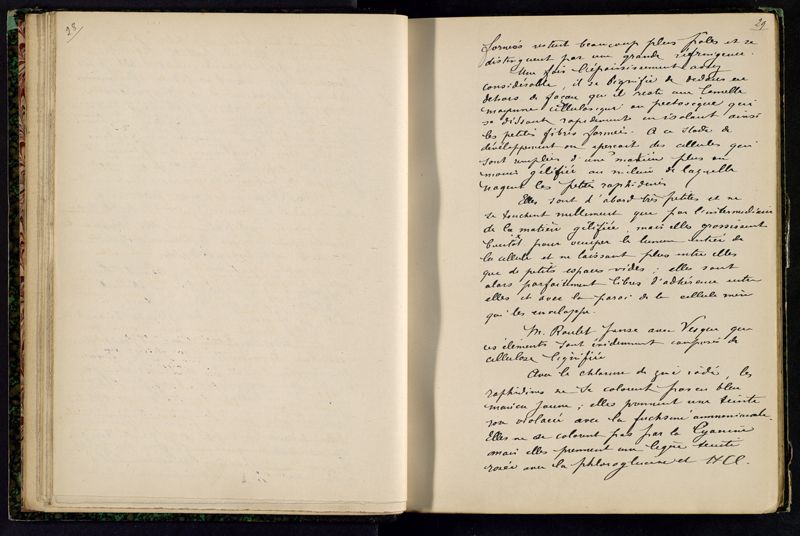 28
29
formés restent beaucoup plus pâles et se
distinguent par une grande réfringence.
Une fois l'épaississement assez
considérable, il se lignifie de dedans en
dehors de façon qu'il reste une lamelle
moyenne cellulosique ou pectosique qui
se dissout rapidement en isolant ainsi
les petites fibres formées. A ce stade de
développement on aperçoit des cellules qui
sont remplies d'une matière plus ou
moins gélifiée au milieu de laquelle
nagent les petites raphidines
Elles sont d'abord très petites et ne
se touchent nullement que par l'intermédiaire
de la matière gélifiée, mais elles grossissent
bientôt pour occuper le lumen entier de
la cellule et ne laissant plus entre elles
que de petits espaces vides ; elles sont
alors parfaitement libres d'adhérence entre
elles et avec la paroi de la cellule mère
qui les enveloppe.
M. Roulet pense avec Vesque que
ces éléments sont évidemment composés de
cellulose lignifiée
Avec le chlorure de zinc iodé, les
raphidines ne se colorent pas en bleu
mais en jaune ; elles prennent une teinte
rose violacée avec la fuchsine ammoniacale.
Elles ne se colorent pas par la Cyanine
mais elles prennent une légère teinte
rosée avec la phloroglucine et HCl.